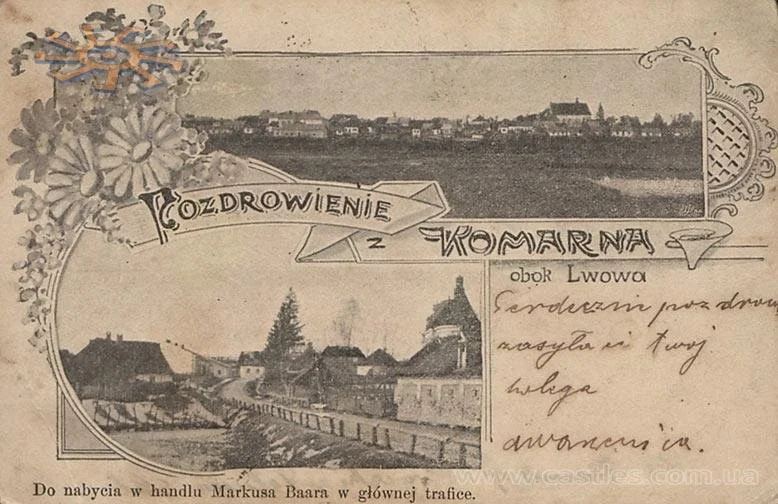 POZDROWIENIE
Z KOMARNA
obok Lwowa
Serdeczni pozdrow
zasyła ci twój
kolega
Do nabycia w handlu Markusa Baara w głównej trafice.
www.castles.com.ua